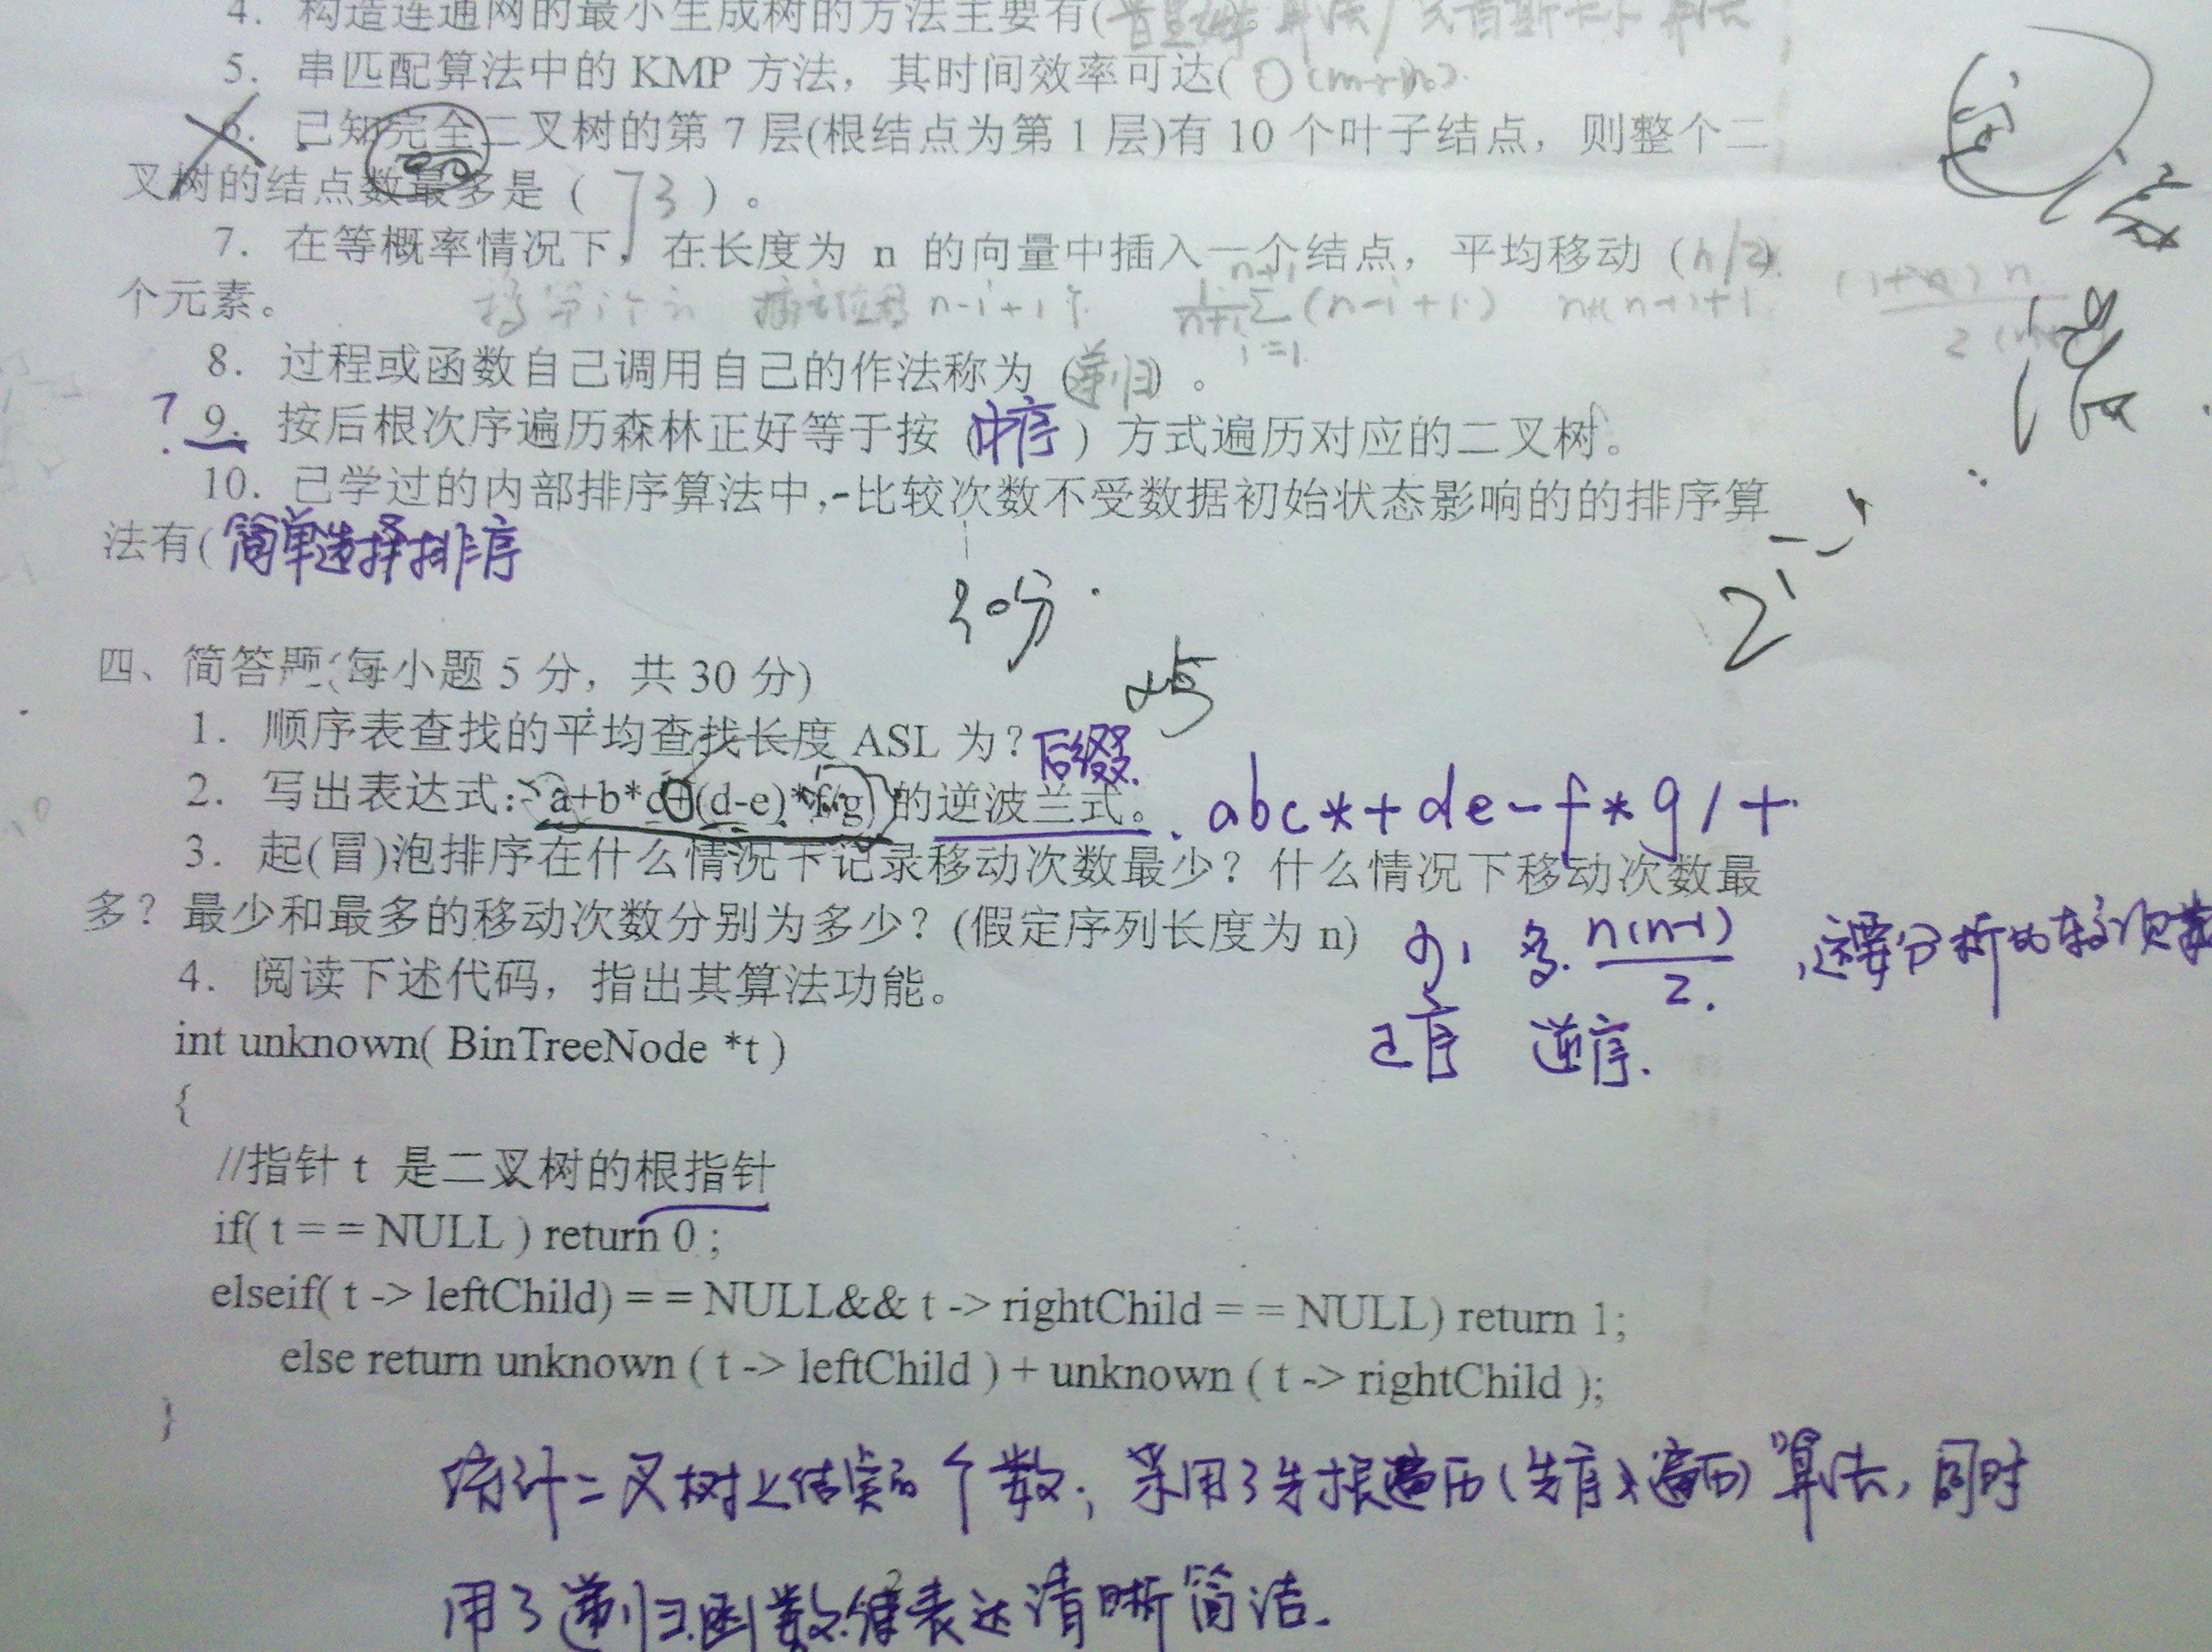 4. 构造连通网的最小生成树的方法主要有(普里姆算法/克鲁斯卡尔算法
5. 串匹配算法中的 KMP 方法，其时间效率可达( O(m+n).
6. 已知完全二叉树的第 7 层(根结点为第 1 层)有 10 个叶子结点，则整个二
叉树的结点数最多是 ( 73 ) 。
7. 在等概率情况下，在长度为 n 的向量中插入一个结点，平均移动 (n/2)
个元素。 n-i+1个 (n-i+1)
i=1
8. 过程或函数自己调用自己的作法称为 (递归) 。
? 9. 按后根次序遍历森林正好等于按 (中序 ) 方式遍历对应的二叉树。
10. 已学过的内部排序算法中,-比较次数不受数据初始状态影响的的排序算
法有( 简单选择排序
30分.
四、简答题(每小题 5 分，共 30 分)
1. 顺序表查找的平均查找长度 ASL 为? 后缀.
2. 写出表达式: a+b*c+(d-e)*f/g) 的逆波兰式。. abc*+de-f*g/+
3. 起(冒)泡排序在什么情况下记录移动次数最少? 什么情况下移动次数最
多? 最少和最多的移动次数分别为多少? (假定序列长度为 n) 多. n(n-1)
2.
4. 阅读下述代码，指出其算法功能。
正序 逆序.
int unknown( BinTreeNode *t )
{
//指针 t 是二叉树的根指针
if( t = = NULL ) return 0 ;
elseif( t -> leftChild) = = NULL&& t -> rightChild = = NULL) return 1;
else return unknown ( t -> leftChild ) + unknown ( t -> rightChild );
}
统计二叉树上结点的个数; 采用了先根遍历(先序遍历)算法, 同时
用了递归函数使表达清晰简洁.